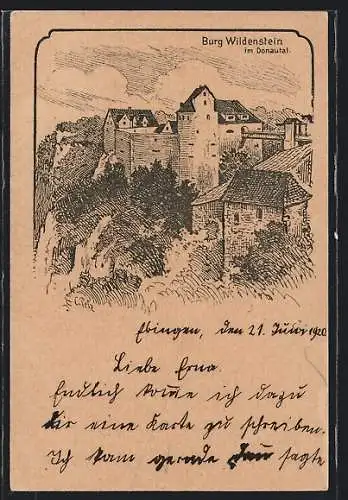 Burg Wildenstein
im Donautal.
Ebingen, den 21. Juni 1920
Liebe Erna.
Endlich kom̅e ich dazu
dir eine Karte zu schreiben.
Ich kam gerade sagte